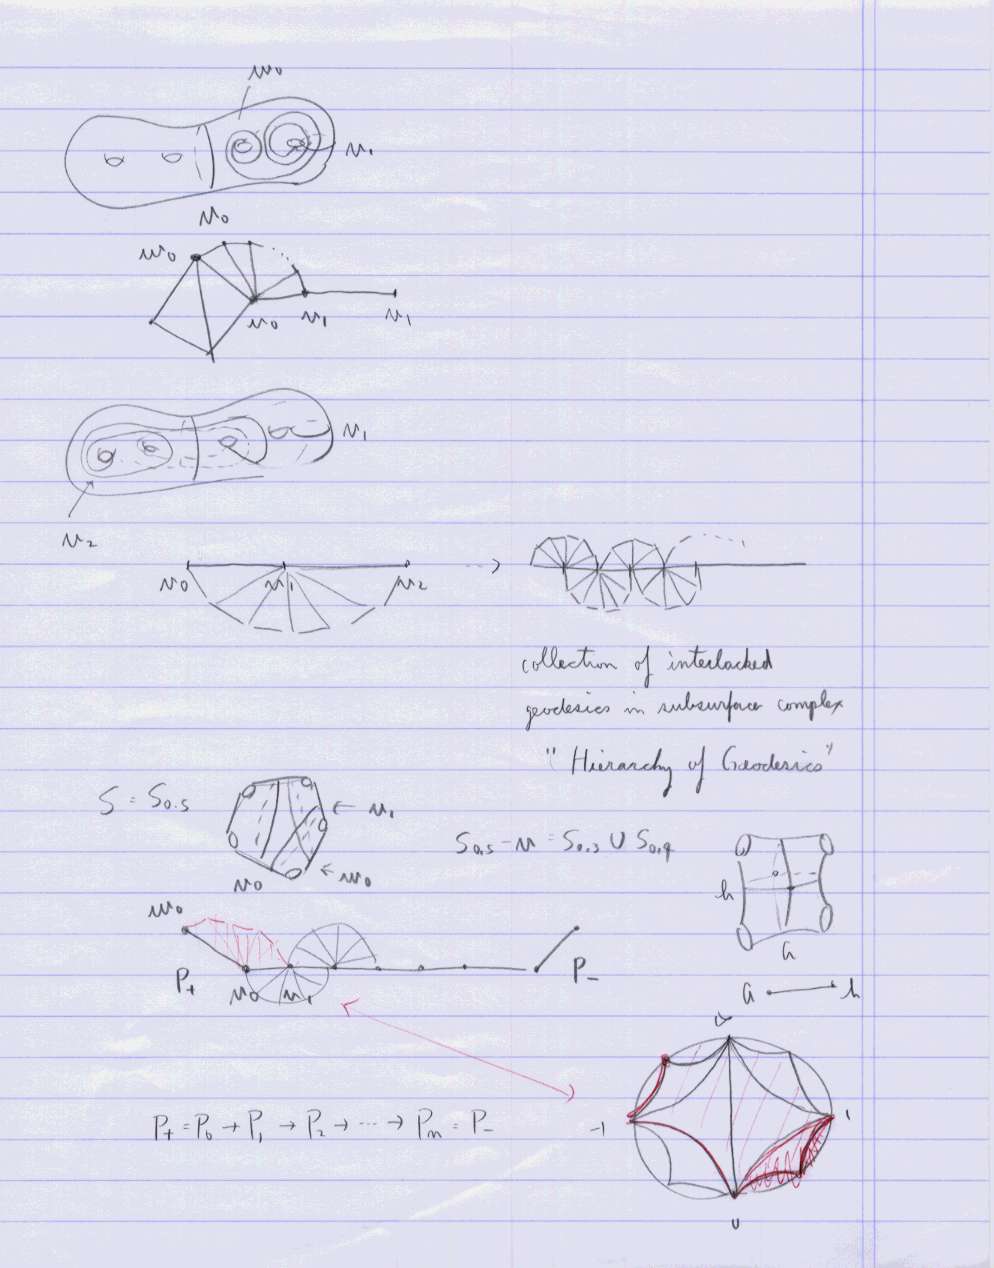 w₀
v₁
v₀
w₀
v₀ v₁ v₁
v₁
v₂
v₀ v₁ v₂
collection of interlocked
geodesics in subsurface complex
"Hierarchy of Geodesics"
S = S₀.₅
← v₁
v₀ ← w₀
S₀,₅ - v = S₀,₃ ∪ S₀,₄
b
a
w₀
P₊ v₀ v₁ P₋
a b
P₊ = P₀ → P₁ → P₂ → ⋯ → Pₙ = P₋
-1 1
0